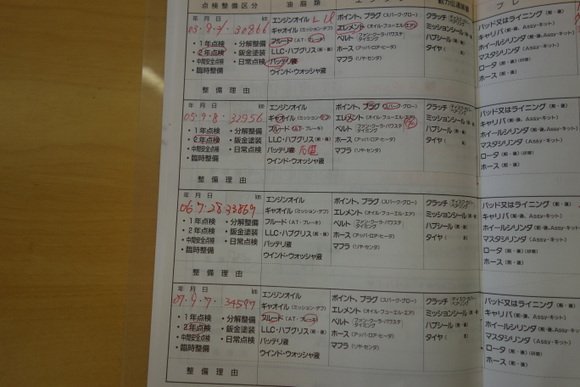 点検整備区分 油脂類
年 月 日 ㎞ エンジンオイル ポイント、プラグ(スパーク・グロー) クラッチ パッド又はライニング
30866 ギヤオイル(ミッション・デフ) エレメント(オイル・フューエル・エア) ミッションシール キャリパ
・1年点検 ・分解整備 フルード(AT・ブレーキ) ベルト(ファン・クーラ・パワステ タイミング) ハブシール ホイールシリンダ
・2年点検 ・鈑金塗装 LLC・ハブグリス ホース(アッパ・ロア・ヒータ) タイヤ マスタシリンダ
・中間安全点検 ・日常点検 バッテリ液 マフラ ロータ
・臨時整備 ウインド・ウォッシャ液 ホース
整 備 理 由
年 月 日 ㎞ エンジンオイル ポイント、プラグ(スパーク・グロー) クラッチ パッド又はライニング
05.9.8. ギヤオイル(ミッション・デフ) エレメント(オイル・フューエル・エア) ミッションシール キャリパ
・1年点検 ・分解整備 フルード(AT・ブレーキ) ベルト(ファン・クーラ・パワステ タイミング) ハブシール ホイールシリンダ
・2年点検 ・鈑金塗装 LLC・ハブグリス ホース(アッパ・ロア・ヒータ) タイヤ マスタシリンダ
・中間安全点検 ・日常点検 バッテリ液 充電 マフラ ロータ
・臨時整備 ウインド・ウォッシャ液 ホース
整 備 理 由
年 月 日 ㎞ エンジンオイル ポイント、プラグ(スパーク・グロー) クラッチ パッド又はライニング
06.7.28. 33869 ギヤオイル(ミッション・デフ) エレメント(オイル・フューエル・エア) ミッションシール キャリパ
・1年点検 ・分解整備 フルード(AT・ブレーキ) ベルト(ファン・クーラ・パワステ タイミング) ハブシール ホイールシリンダ
・2年点検 ・鈑金塗装 LLC・ハブグリス ホース(アッパ・ロア・ヒータ) タイヤ マスタシリンダ
・中間安全点検 ・日常点検 バッテリ液 マフラ ロータ
・臨時整備 ウインド・ウォッシャ液 ホース
整 備 理 由
年 月 日 ㎞ エンジンオイル ポイント、プラグ(スパーク・グロー) クラッチ パッド又はライニング
07.9.7. 34597 ギヤオイル(ミッション・デフ) エレメント(オイル・フューエル・エア) ミッションシール キャリパ
・1年点検 ・分解整備 フルード(AT・ブレーキ) ベルト(ファン・クーラ・パワステ タイミング) ハブシール ホイールシリンダ
・2年点検 ・鈑金塗装 LLC・ハブグリス ホース(アッパ・ロア・ヒータ) タイヤ マスタシリンダ
・中間安全点検 ・日常点検 バッテリ液 マフラ ロータ
・臨時整備 ウインド・ウォッシャ液 ホース
整 備 理 由